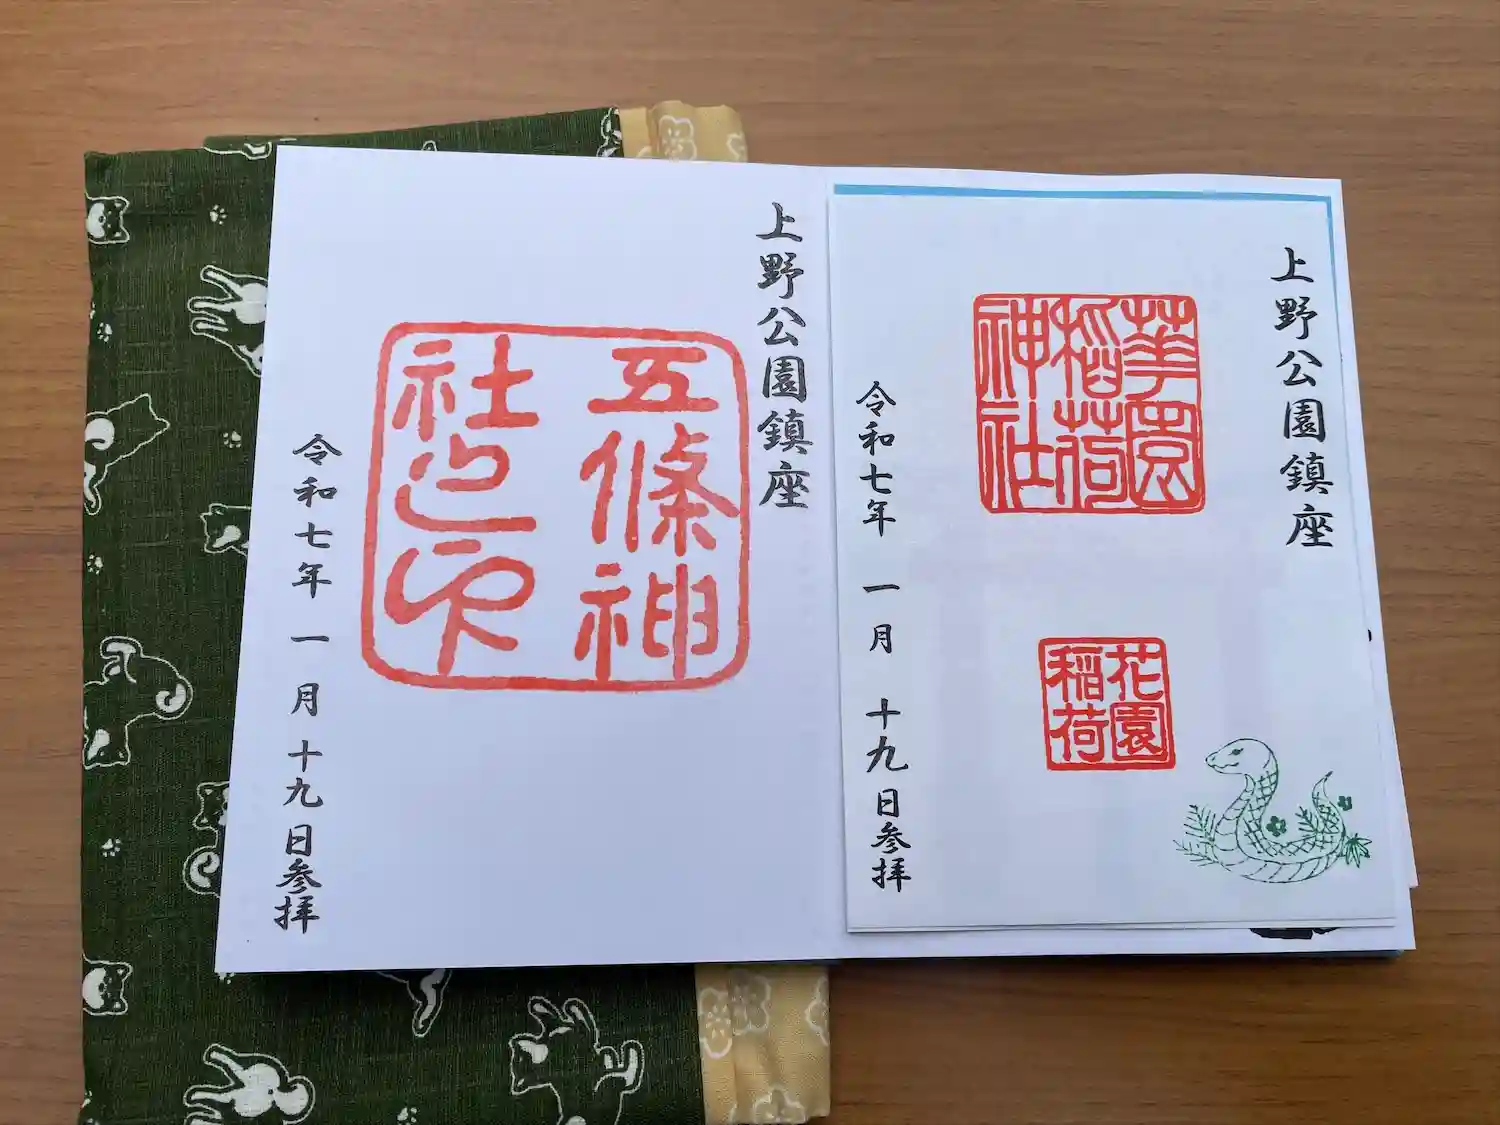 上野公園鎮座
華園
稲荷
神社
花園
稲荷
令和七年 一月 十九日参拝
上野公園鎮座
五條神
社之印
令和七年 一月 十九日参拝